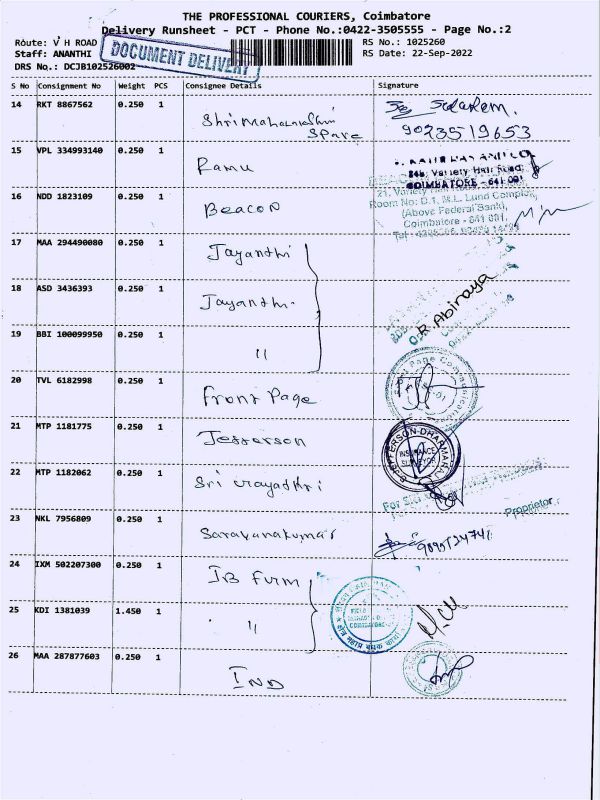 THE PROFESSIONAL COURIERS, Coimbatore
Delivery Runsheet - PCT - Phone No.:0422-3505555 - Page No.:2
Route: V H ROAD
RS No.: 1025260
Staff: ANANTHI
DOCUMENT DELIVERY
RS Date: 22-Sep-2022
DRS No.: DCJB102526002
S No Consignment No Weight PCS Consignee Details Signature
14 RKT 8867562 0.250 1
Spare
9023519653
15 VPL 334993140 0.250 1
Ramu
COIMBATORE - 641 001
16 NDD 1823109 0.250 1
Beacon
21, Variety Hall Road,
Room No: D.1, M.L. Lund Complex,
(Above Federal Bank),
Coimbatore - 641 001.
17 MAA 294490080 0.250 1
Jayanthi
18 ASD 3436393 0.250 1
Jayanthi
R. Abiraya
19 BBI 100099950 0.250 1
"
20 TVL 6182998 0.250 1
Front Page
21 MTP 1181775 0.250 1
Jefferson
JEFFERSON DHARMARAJ
INSURANCE
SURVEYOR
22 MTP 1182062 0.250 1
Sri
Proprietor
23 NKL 7956809 0.250 1
Saravanakumar
24 IXM 502207300 0.250 1
IB Furm
COIMBATORE
25 KDI 1381039 1.450 1
"
26 MAA 287877603 0.250 1
IND